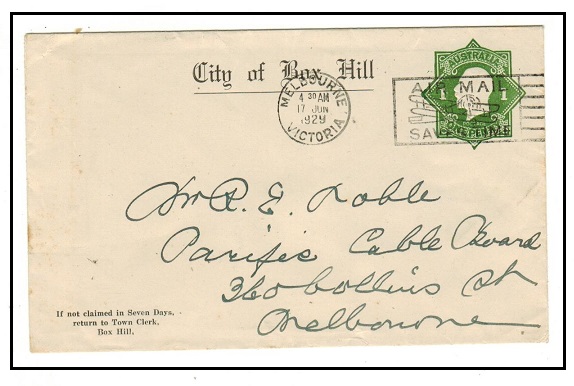 City of Box Hill
AUSTRALIA
MELBOURNE
4 30 AM
17 JUN
1929
VICTORIA
AIR MAIL
SAVES TIME
1 1
Mr R. E. Loble
Pacific Cable Board
360 Collins St
Melbourne
If not claimed in Seven Days,
return to Town Clerk,
Box Hill.